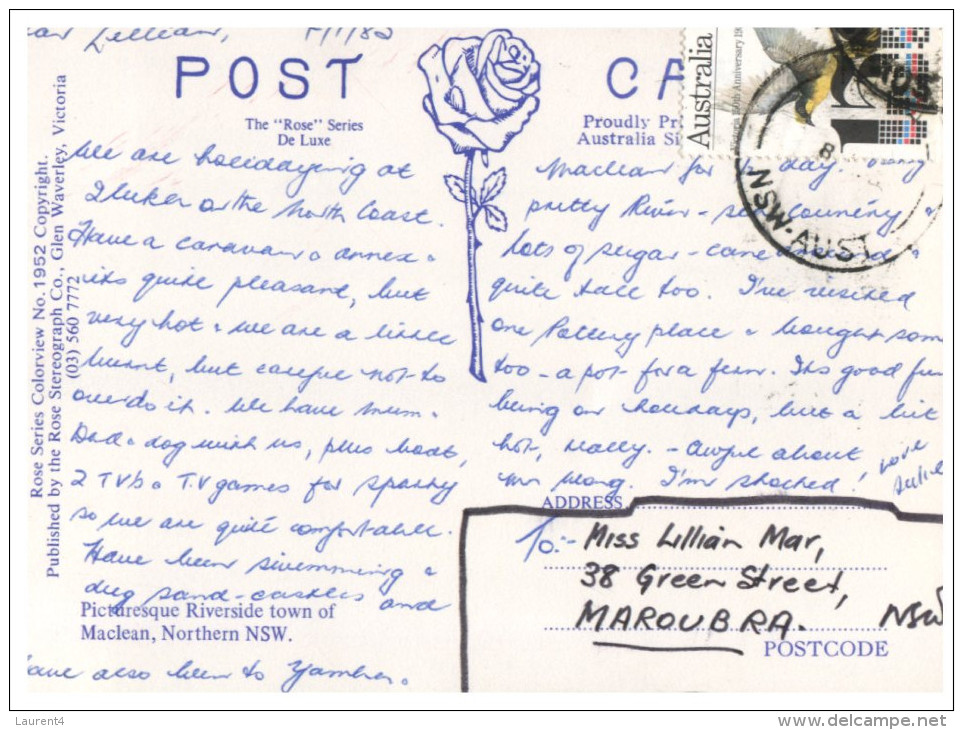 Lillian,
POST CA
The "Rose" Series
De Luxe
Proudly Pr
Australia S
Australia
Victoria 150th Anniversary 19
NSW-AUST
Rose Series Colorview No. 1952 Copyright.
Published by the Rose Stereograph Co., Glen Waverley, Victoria
(03) 560 7772
We are holidaying at
Iluka on the North Coast.
Have a caravan & annex &
its quite pleasant, but
very hot & we are a little
burnt, but careful not to
overdo it. We have Mum &
Dad & dog with us, plus boat,
2 TVs & T.V games for sparky
so we are quite comfortable.
Have been swimming &
dug sand-castles and
Picturesque Riverside town of
Maclean, Northern NSW.
have also been to Yamba &
Maclean for day.
pretty River - Country &
lots of sugar-cane &
quite tall too. I've visited
one Pottery place & bought som
too - a pot for a fern. Its good fun
being on holidays, but a bit
hot, really. - Awful about
Mr Wong. I'm shocked! love
ADDRESS
To:- Miss Lillian Mar,
38 Green Street,
MAROUBRA. NSW
POSTCODE
Laurent4
www.delcampe.net